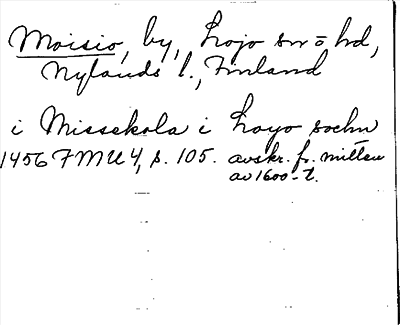 Moisio, by, Lojo sn o hd,
Nylands l., Finland
i Missekola i Loyo sochn
1456 FMU 4, s. 105. avskr. fr. mitten
av 1600-t.